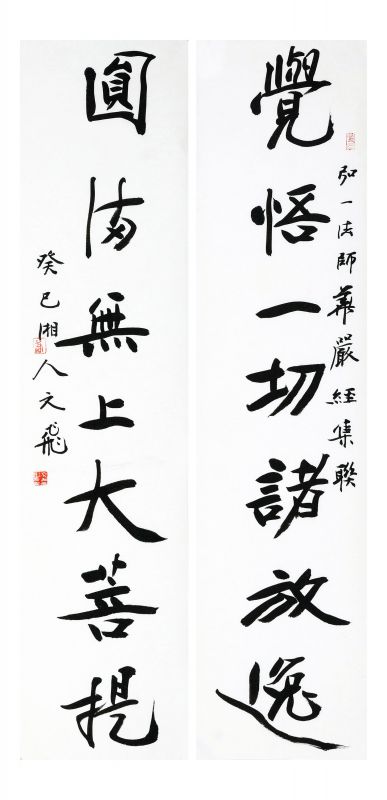 覺悟一切諸放逸
弘一法師華嚴經集聯
圓滿無上大菩提
癸巳湘人文飛